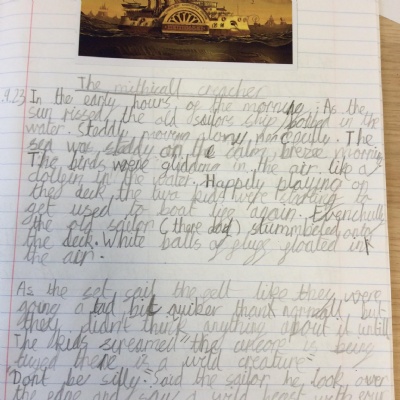 The mithicall creacher
9.23 In the early hours of the morning. As the
sun rissed, the old sailors ship bobed in the
water. Staddy moving along The
sea was staddy on the calm breeze morning
The birds were glidding in the air like a
in the water. Happily playing on
the deck the two kids were starting to
get used to boat life again. Evenchully
the old sailor (there dad) stummbeled onto
the deck. White balls of fluff floated in
the air.
As the set sail the felt like they were
going a tad bit quiker than normald, but
they didn't think anything about it untill
The kids screamed "the is being
there is a wild creature"
"Dont be silly" said the sailor he look over
the edge and saw a wild beast with